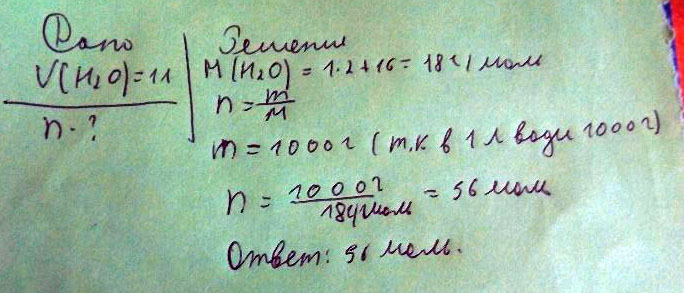 Дано
V(H₂O)=1л
n-?
Решение
M(H₂O) = 1·2+16 = 18 г/моль
n = m/M
m = 1000г (т.к в 1 л води 1000г)
n = 1000г/18г/моль = 56 моль
Ответ: 56 моль.